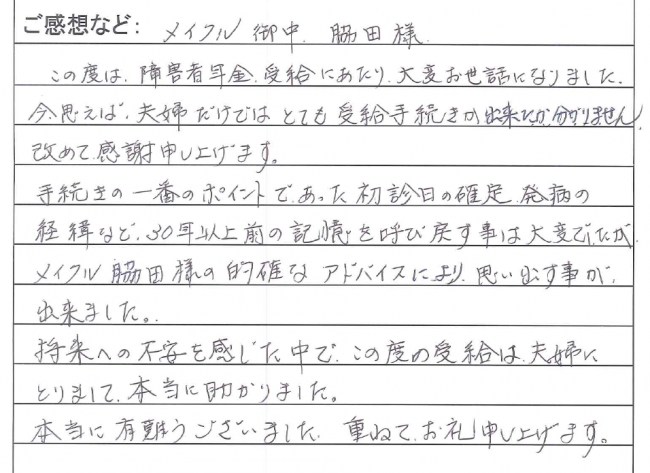 ご感想など: メイクル 御中. 脇田様.
この度は、障害者年金、受給にあたり、大変お世話になりました.
今、思えば、夫婦だけでは とても 受給手続きが 出来たか分かりません
改めて、感謝申し上げます。
手続きの一番のポイントであった 初診日の確定、発病の
経緯など、30年以上前の記憶を呼び戻す事は大変でしたが
メイクル 脇田様の的確な アドバイスにより、思い出す事が、
出来ました。
将来への不安を感じた中で、この度の受給は、夫婦に
とりまして、本当に助かりました。
本当に 有難うございました. 重ねて、お礼申し上げます。